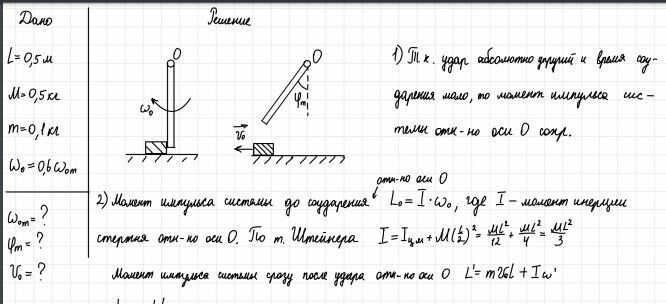 Дано
Решение
L = 0,5 м
M = 0,5 кг
m = 0,1 кг
ω₀ = 0,6 ω₀m
ω₀m = ?
φm = ?
v₀ = ?
O
ω₀
O
φm
v₀
1) Т.к. удар абсолютно упругий и время соу-
дарения мало, то момент импульса сис-
темы отн-но оси O сохр.
отн-но оси O
2) Момент импульса системы до соударения L₀ = I · ω₀, где I – момент инерции
стержня отн-но оси O. По т. Штейнера I = Iц.м + M(L/2)² = ML²/12 + ML²/4 = ML²/3
Момент импульса системы сразу после удара отн-но оси O L' = mv₀L + Iω'